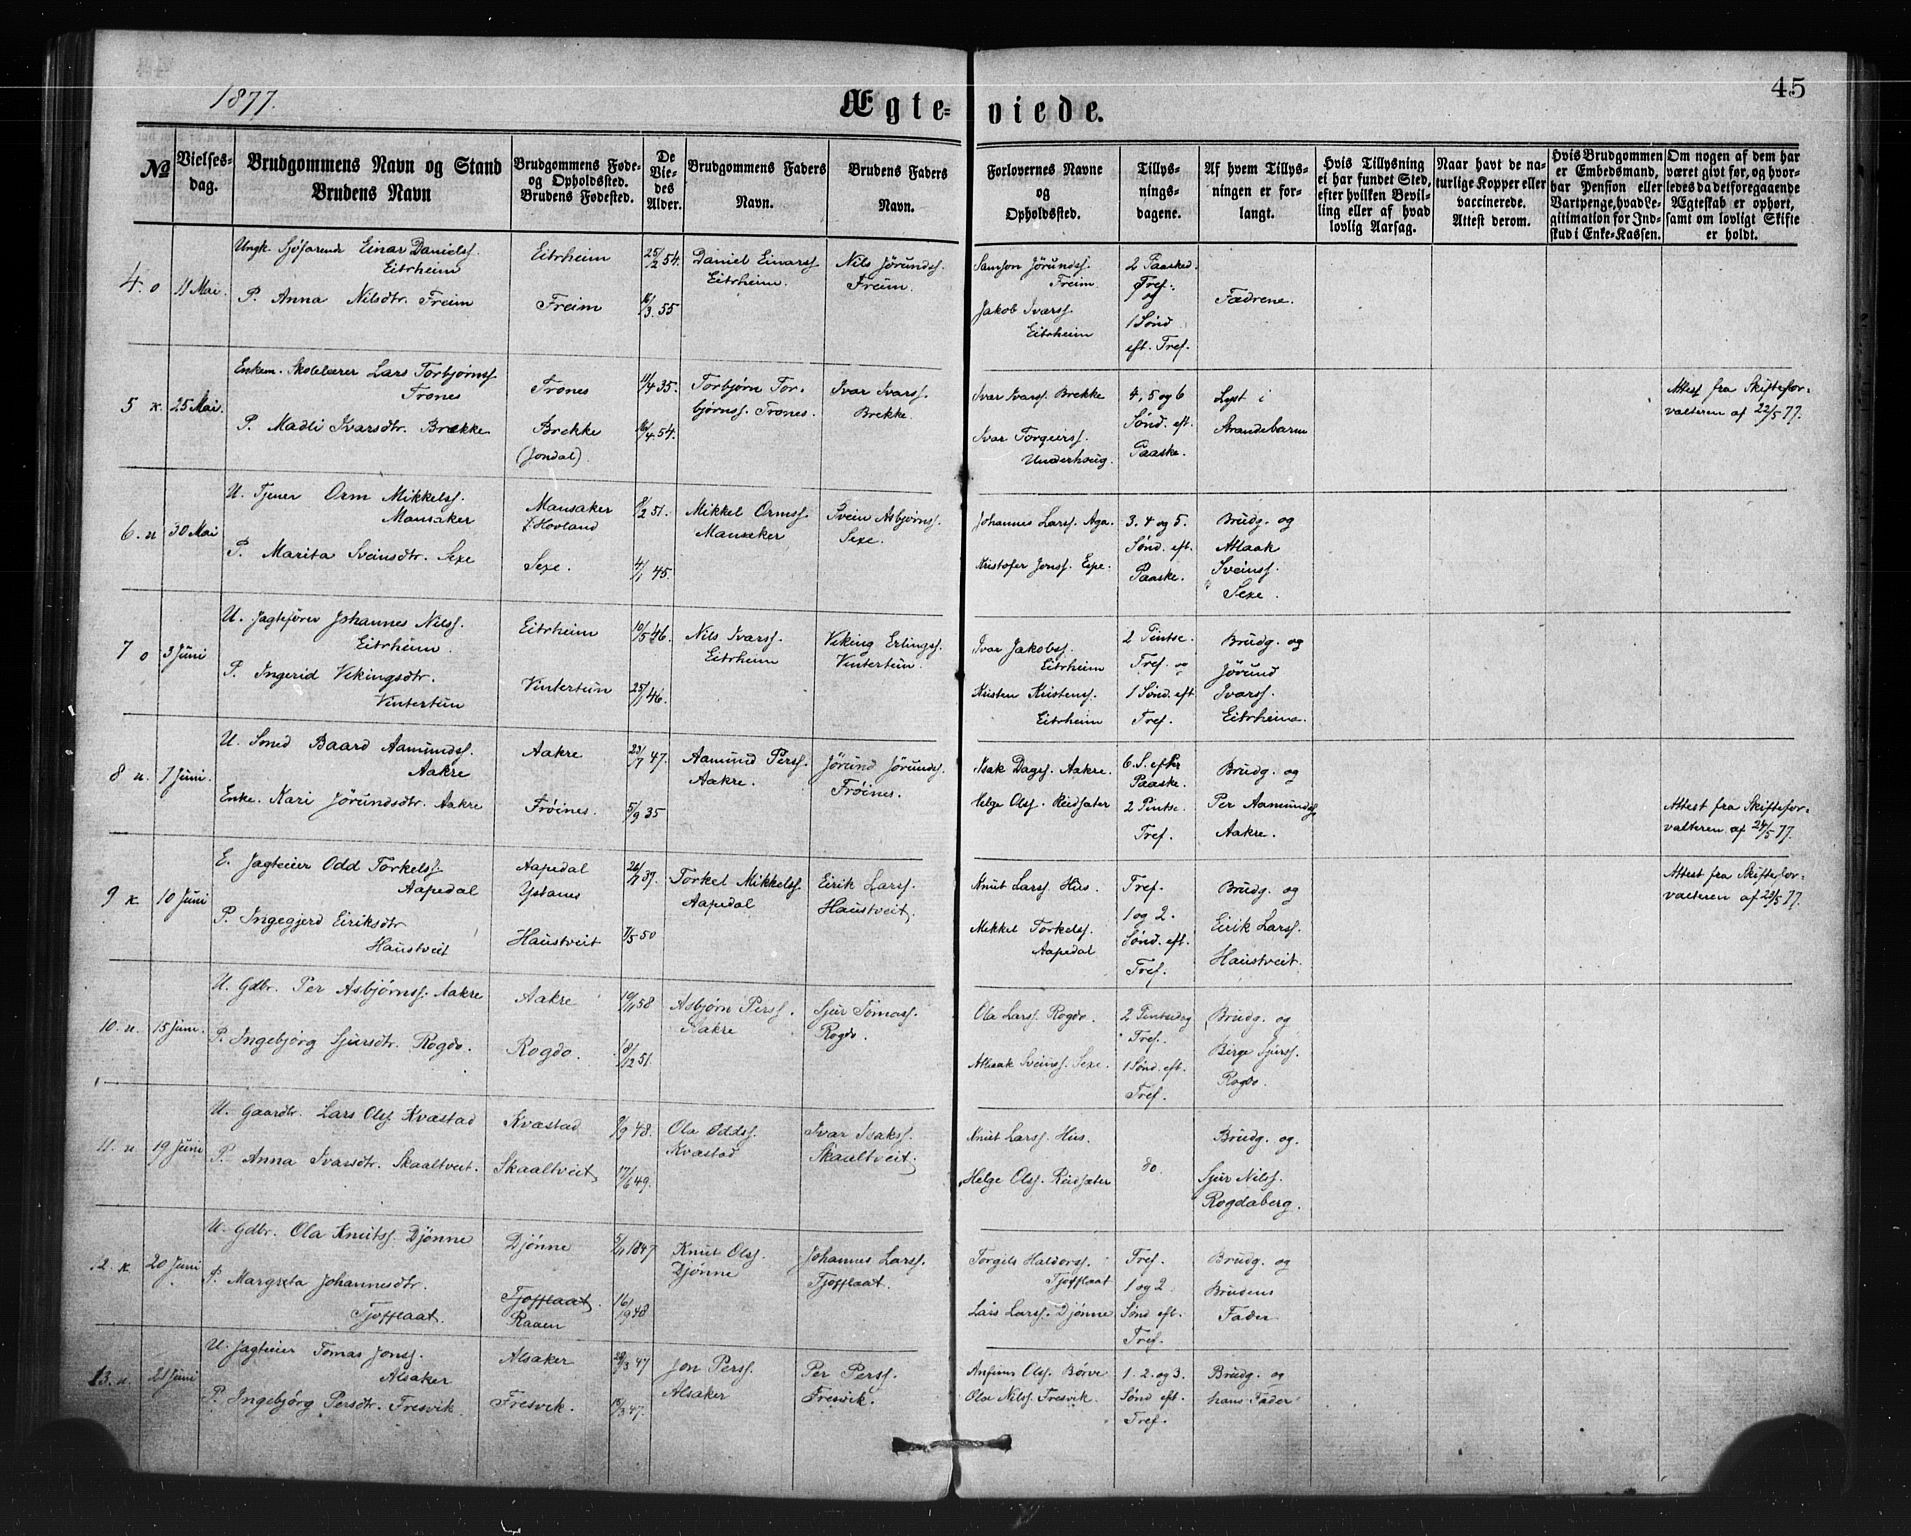 1877.
Ægte-viede.
45
№
Vielses-dag.
Brudgommens Navn og Stand
Brudens Navn
Brudgommens Føde- og Opholdssted.
Brudens Fødested.
De Viedes Alder.
Brudgommens Faders Navn.
Brudens Faders Navn.
Forlovernes Navne og Opholdssted.
Tillysningsdagene.
Af hvem Tillysningen er forlangt.
Hvis Tillysning ei har fundet Sted, efter hvilken Bevilling eller af hvad lovlig Aarsag.
Naar havt de naturlige Kopper eller vaccinerede. Attest derom.
Hvis Brudgommen er Embedsmand, har Pension eller Vartpenge, hvad Legitimation for Indskud i Enke-Kassen.
Om nogen af dem har været givt før, og hvorledes da det foregaaende Ægteskab er ophørt, samt om lovligt Skifte er holdt.
4. o 11 Mai.
Ungk. Sjøfarende Einar Danielsf.
Eitrheim
P. Anna Nilsdtr. Freim
Eitrheim
Freim
25/2 54.
16/3 55
Daniel Einarsf.
Eitrheim.
Nils Jørundsf.
Freim.
Samson Jørundsf.
Freim.
Jakob Ivarsf.
Eitrheim
2 Paasked.
Tref. og
1 Sønd
eft. Tref.
Fædrene.
5 k. 25 Mai.
Enkem. Skolelærer Lars Torbjørnsf
Trones
P. Madli Ivarsdtr. Brække
Trones
Brekke
(Jondal)
11/4 35.
16/4 54.
Torbjørn Torbjørnsf. Trones.
Ivar Ivarsf.
Brekke.
Ivar Ivarsf. Brekke
Ivar Torgeirsf.
Underhaug.
4, 5 og 6
Sønd. eft.
Paaske.
Lyst i
Strandebarm
Attest fra Skifteforvalteren af 22/5 77.
6. u 30 Mai
U. Tjener Orm Mikkelsf.
Mansaker
P. Marita Sveinsdtr. Sexe
Mansaker
Hovland
Sexe.
8/2 51.
4/1 45.
Mikkel Ormsf.
Mansaker
Svein Asbjørnsf.
Sexe.
Johannes Larsf. Aga.
Kristofer Jonsf. Espe.
3. 4 og 5.
Sønd. eft.
Paaske.
Brudg. og
Atlaak
Sveinsf.
Sexe.
7 o 3 Juni
U. Jagtefører Johannes Nilsf.
Eitrheim.
P. Ingerid Vikingsdtr.
Vintertun
Eitrheim
Vintertun
10/5 46.
25/1 46.
Nils Ivarsf.
Eitrheim
Viking Erlingsf.
Vintertun.
Ivar Jakobsf.
Eitrheim
Kristen Kristensf.
Eitrheim
2 Pintse.
Tref. og
1 Sønd. eft
Tref.
Brudg. og
Jørund
Ivarsf.
Eitrheim.
8 u. 7 Juni.
U. Smed Baard Aamundsf.
Aakre
Enke. Kari Jørundsdtr. Aakre
Aakre
Frøines.
23/7 47.
5/9 35
Aamund Persf.
Aakre.
Jørund Jørundsf.
Frøines.
Isak Dagsf. Aakre.
Helge Olsf. Reidsæter
6. S. efter
Paaske.
2 Pintse
Tref.
Brudg. og
Per Aamundsf
Aakre.
Attest fra Skifteforvalteren af 24/5 77.
9 k. 10 Juni
E. Jagteier Odd Torkelsf.
Aapedal
P. Ingegjerd Eiriksdtr
Haustveit
Aapedal
Ystanes
Haustveit
26/7 39.
7/5 50
Torkel Mikkelsf.
Aapedal
Eirik Larsf.
Haustveit.
Knut Larsf. Hus.
Mikkel Torkelsf.
Aapedal
Tref.
1 og 2.
Sønd. eft.
Tref.
Brudg. og
Eirik Larsf.
Haustveit.
Attest fra Skifteforvalteren af 23/5 77.
10. u. 15 Juni.
U. Gdbr. Per Asbjørnsf. Aakre
P. Ingebjørg Sjursdtr. Rogdo.
Aakre
Rogdo.
58
18/12 51.
Asbjørn Persf.
Aakre
Sjur Tomasf.
Rogdo.
Ola Larsf. Rogdo.
Atlaak Sveinsf. Sexe.
2 Pintsedag
Tref.
1 Sønd. eft.
Tref.
Brudg. og
Birge Sjursf.
Rogdo.
11. u 19 Juni
U. Gaardbr. Lars Olsf Kvæstad
P. Anna Ivarsdtr. Skaaltveit.
Kvæstad
Skaaltveit
9/9 48.
17/6 49.
Ola Oddsf.
Kvæstad
Ivar Isaksf.
Skaaltveit.
Knut Larsf. Hus.
Helge Olsf. Reidsæter
do.
Brudg. og.
Sjur Nilsf.
Rogdaberg.
12. k. 20 Juni
U. Gdbr. Ola Knutsf. Djønne
P. Margreta Johannesdtr.
Tjoflaat.
Djønne
Tjoflaat.
Raaen
1847
16/9 48
Knut Olsf.
Djønne
Johannes Larsf.
Tjoflaat.
Torgils Haldorsf.
Tjoflaat
Lars Larsf. Djønne
Tref.
1 og 2.
Sønd eft.
Tref.
Brudg. og
Brudens
Fader
13. u. 21 Juni
U. Jagteier Tomas Jonsf.
Alsaker
P. Ingebjørg Persdtr. Fresvik.
Alsaker
Fresvik.
29/3 47
15/3 47.
Jon Persf.
Alsaker
Per Persf.
Fresvik.
Anfinn Olsf. Børve
Ola Nilsf. Fresvik
1. 2. og 3.
Sønd eft.
Tref.
Brudg. og
hans Fader